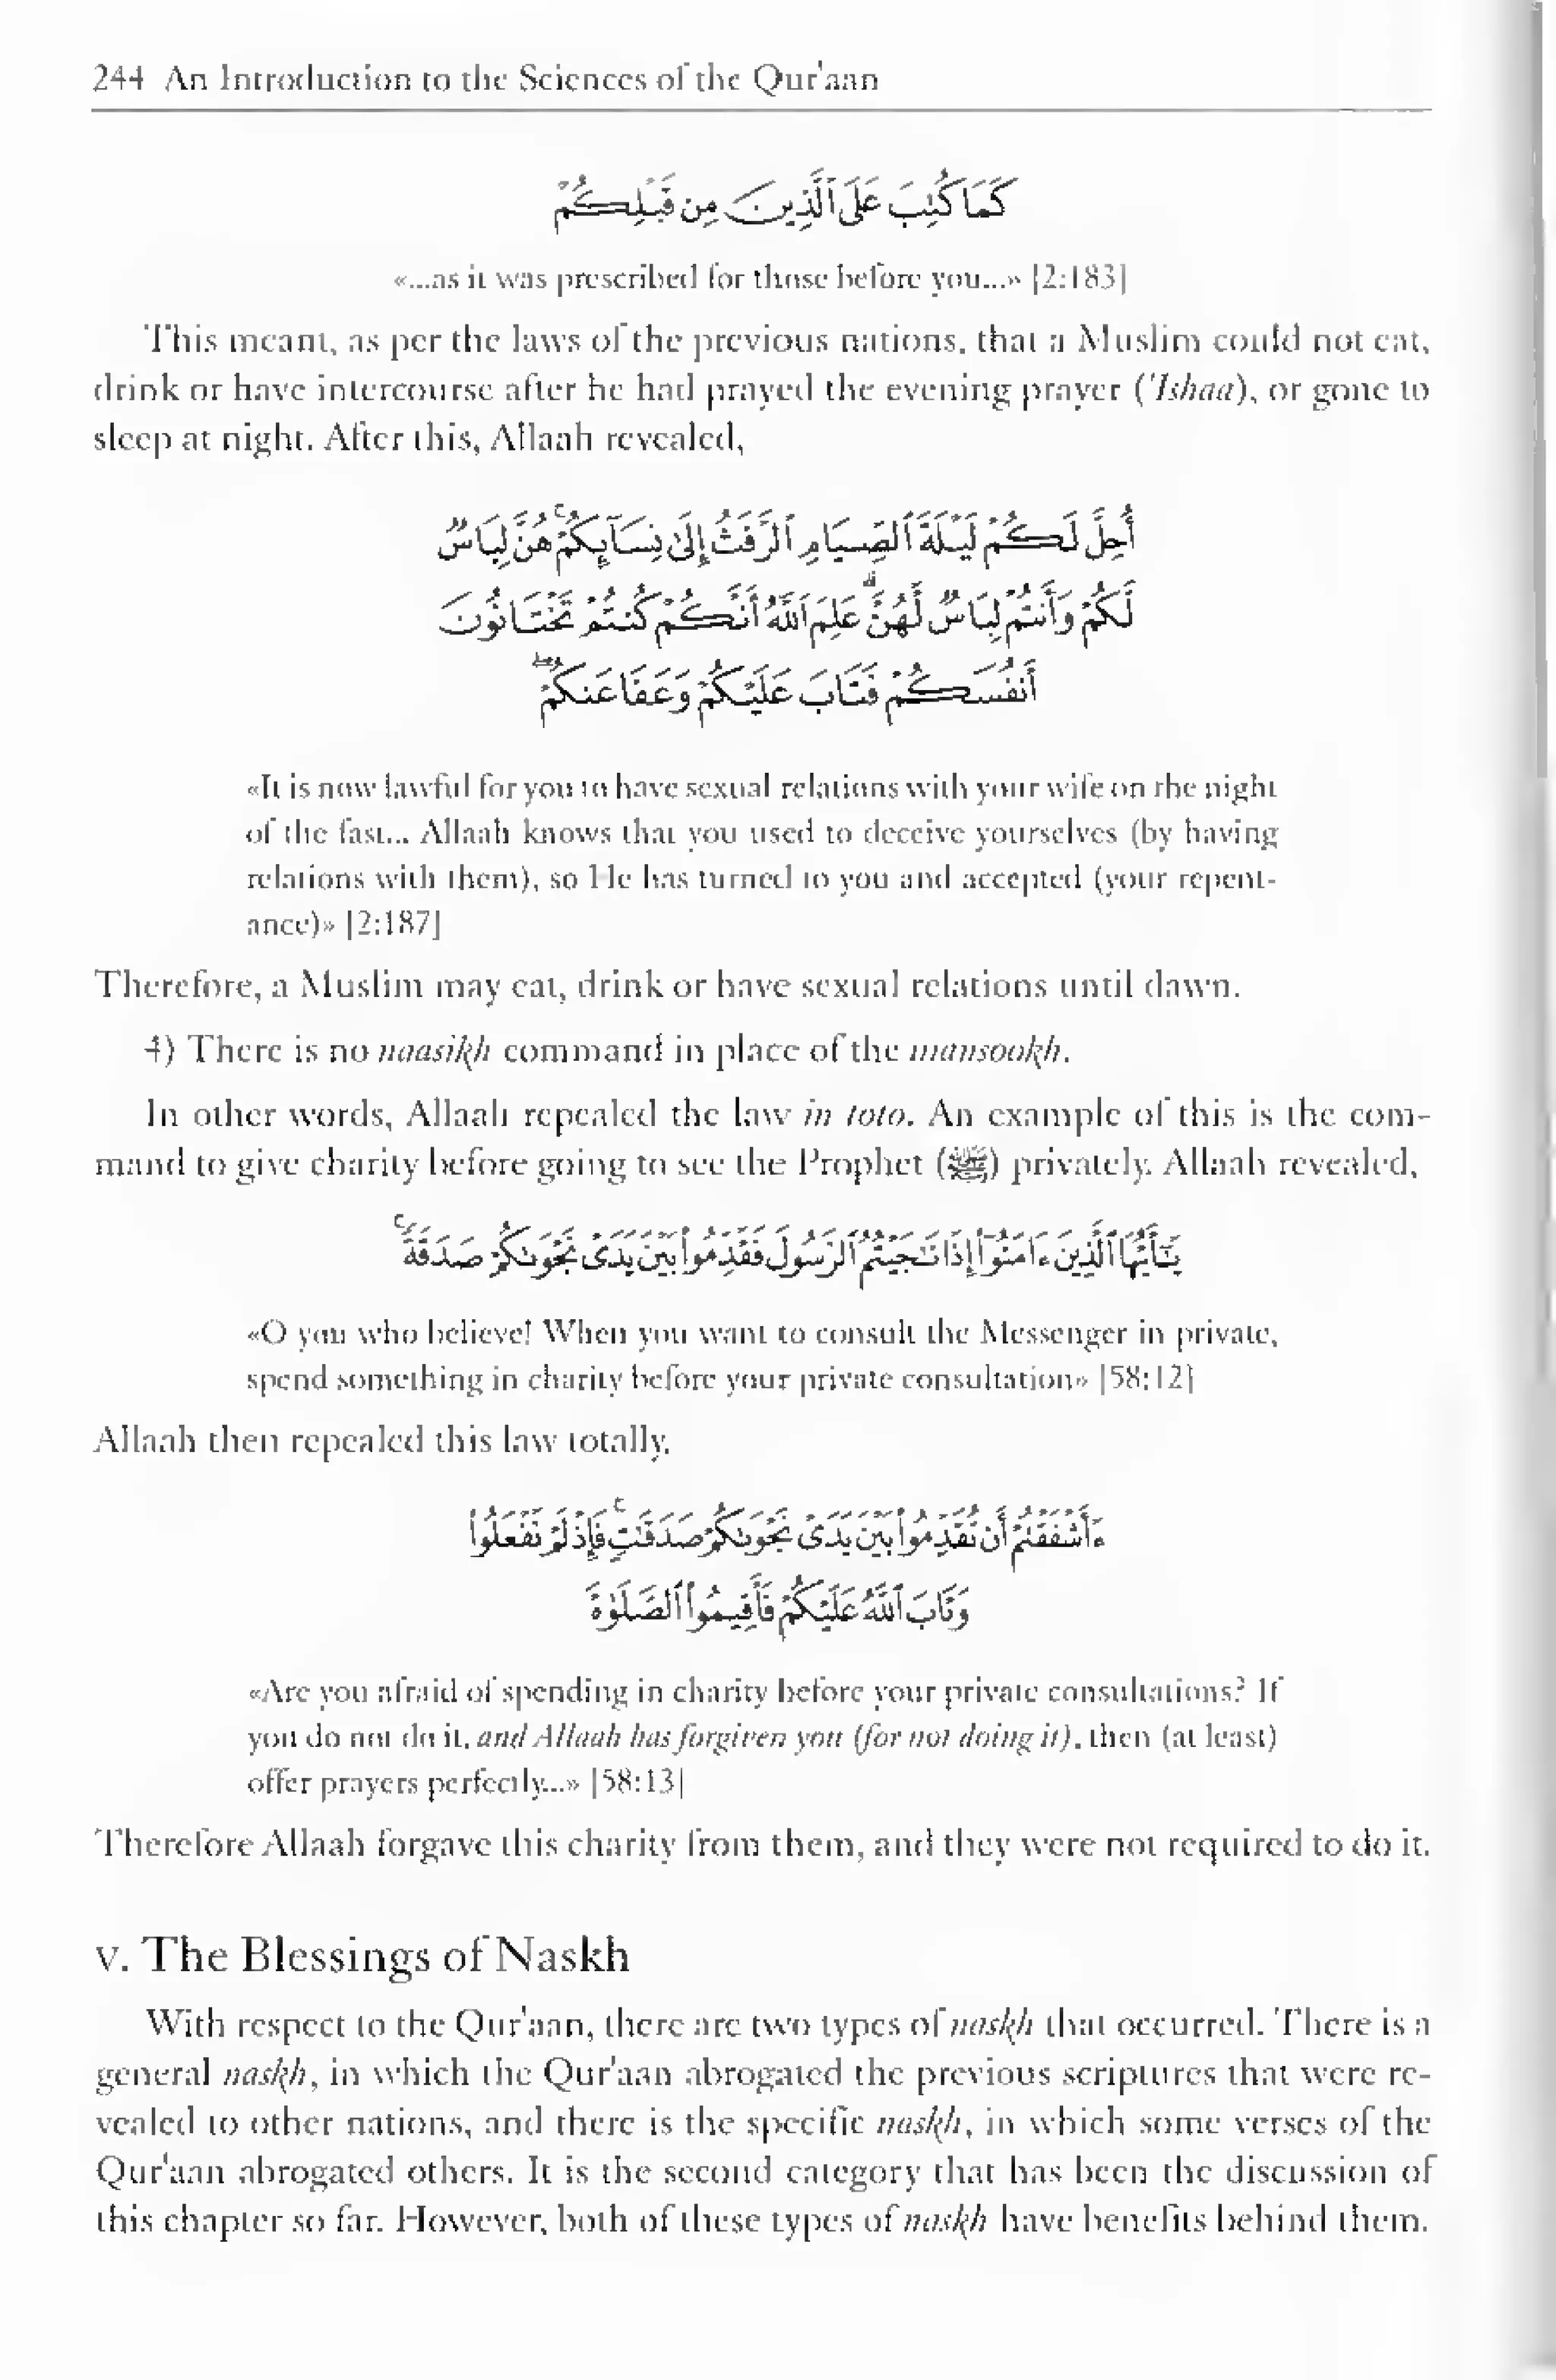 244 An Introduction to the Sciences of the Qur'aan
كَمَا كُتِبَ عَلَى ٱلَّذِينَ مِن قَبْلِكُمْ
«...as it was prescribed for those before you...» [2:183]
This meant, as per the laws of the previous nations, that a Muslim could not eat,
drink or have intercourse after he had prayed the evening prayer ('Ishaa), or gone to
sleep at night. After this, Allaah revealed,
أُحِلَّ لَكُمْ لَيْلَةَ ٱلصِّيَامِ ٱلرَّفَثُ إِلَىٰ نِسَآئِكُمْ ۚ هُنَّ لِبَاسٌ
لَّكُمْ وَأَنتُمْ لِبَاسٌ لَّهُنَّ ۗ عَلِمَ ٱللَّهُ أَنَّكُمْ كُنتُمْ تَخْتَانُونَ
أَنفُسَكُمْ فَتَابَ عَلَيْكُمْ وَعَفَا عَنكُمْ ۖ
«It is now lawful for you to have sexual relations with your wife on the night
of the fast... Allaah knows that you used to deceive yourselves (by having
relations with them), so He has turned to you and accepted (your repent-
ance)» [2:187]
Therefore, a Muslim may eat, drink or have sexual relations until dawn.
4) There is no naasikh command in place of the mansookh.
In other words, Allaah repealed the law in toto. An example of this is the com-
mand to give charity before going to see the Prophet (ﷺ) privately. Allaah revealed,
يَٰٓأَيُّهَا ٱلَّذِينَ ءَامَنُوٓا۟ إِذَا نَٰجَيْتُمُ ٱلرَّسُولَ فَقَدِّمُوا۟ بَيْنَ يَدَىْ نَجْوَىٰكُمْ صَدَقَةً ۚ
«O you who believe! When you want to consult the Messenger in private,
spend something in charity before your private consultation» [58:12]
Allaah then repealed this law totally,
ءَأَشْفَقْتُمْ أَن تُقَدِّمُوا۟ بَيْنَ يَدَىْ نَجْوَىٰكُمْ صَدَقَٰتٍ ۚ فَإِذْ لَمْ تَفْعَلُوا۟
وَتَابَ ٱللَّهُ عَلَيْكُمْ فَأَقِيمُوا۟ ٱلصَّلَوٰةَ
«Are you afraid of spending in charity before your private consultations? If
you do not do it, and Allaah has forgiven you (for not doing it), then (at least)
offer prayers perfectly...» [58:13]
Therefore Allaah forgave this charity from them, and they were not required to do it.
v. The Blessings of Naskh
With respect to the Qur'aan, there are two types of naskh that occurred. There is a
general naskh, in which the Qur'aan abrogated the previous scriptures that were re-
vealed to other nations, and there is the specific naskh, in which some verses of the
Qur'aan abrogated others. It is the second category that has been the discussion of
this chapter so far. However, both of these types of naskh have benefits behind them.